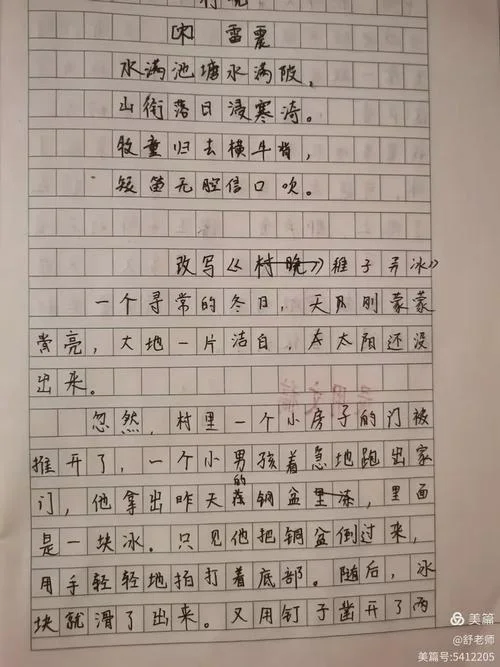 村晚
[宋] 雷震
水满池塘水满陂,
山衔落日浸寒漪。
牧童归去横牛背,
短笛无腔信口吹。
改写《村晚》稚子弄冰》
一个寻常的冬日,天刚蒙蒙
亮,大地一片洁白,太阳还没
出来。
忽然,村里一个小房子的门被
推开了,一个小男孩着急地跑出家
门,他拿出昨天的铜盆,里面
是一块冰。只见他把铜盆倒过来,
用手轻轻地拍打着底部。随后,冰
块就滑了出来。又用钉子凿开了两
美篇
@舒老师
美篇号:5412205